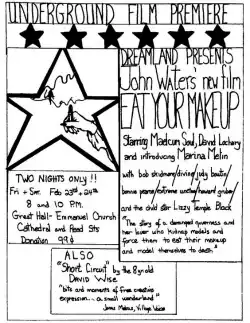 UNDERGROUND FILM PREMIERE
DREAMLAND PRESENTS
John Waters' new film
EAT YOUR MAKEUP
Starring Maelcum Soul, David Lochary
and introducing Marina Melin
with bob skidmore/divine/judy boutin/
bonnie pearce/extreme unction/howard gruber/
and the child star Lizzy Temple Black
"The story of a deranged governess and
her lover who kidnap models and
force them to eat their makeup
and model themselves to death."
TWO NIGHTS ONLY!!
Fri + Sat. Feb 23rd + 24th
8 and 10 P.M.
Great Hall- Emmanuel Church
Cathedral and Read Sts
Donation 99¢
ALSO
"Short Circuit" by the 8yr old
David Wise
"bits and moments of free creative
expression... a small wonderland"
Jonas Mekas, Village Voice